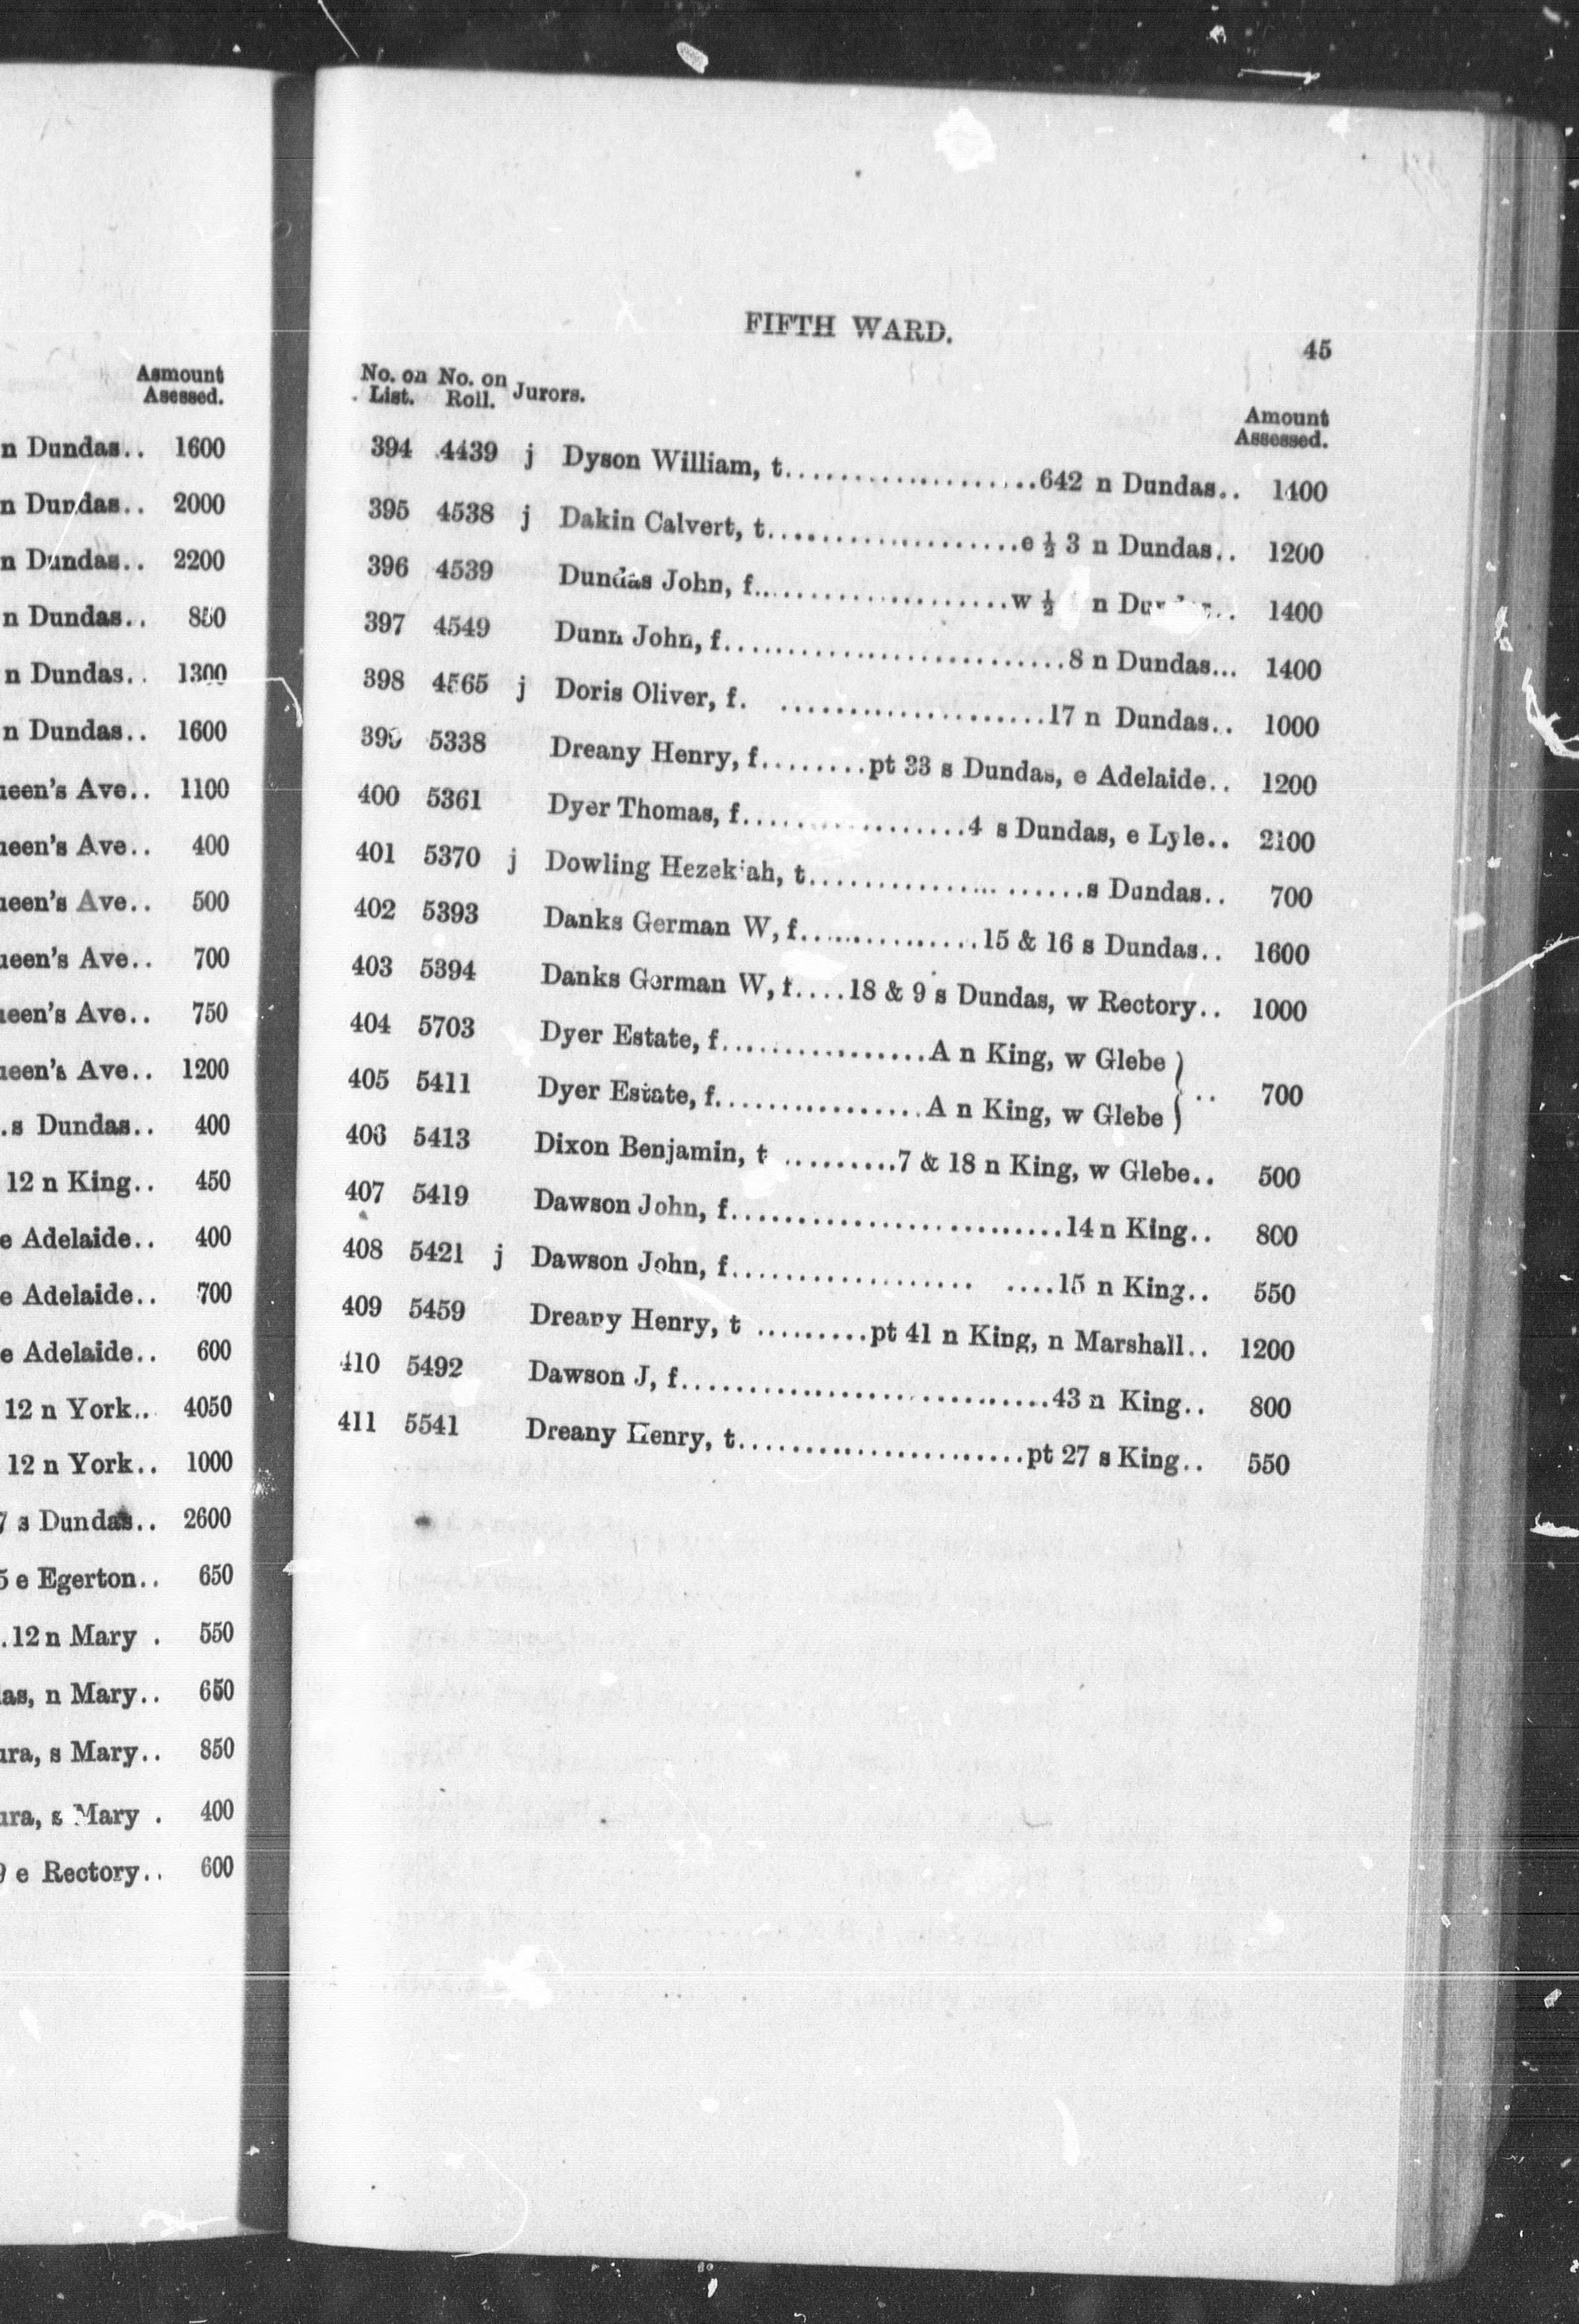 Asmount
Asessed.
n Dundas.. 1600
n Dundas.. 2000
n Dundas.. 2200
n Dundas.. 850
n Dundas.. 1300
n Dundas.. 1600
ueen's Ave.. 1100
ueen's Ave.. 400
ueen's Ave.. 500
ueen's Ave.. 700
ueen's Ave.. 750
ueen's Ave.. 1200
.s Dundas.. 400
12 n King.. 450
e Adelaide.. 400
e Adelaide.. 700
e Adelaide.. 600
12 n York.. 4050
12 n York.. 1000
7 s Dundas.. 2600
5 e Egerton.. 650
.12 n Mary . 550
las, n Mary.. 650
ura, s Mary.. 850
ura, s Mary . 400
9 e Rectory.. 600
FIFTH WARD.
45
No. on No. on Jurors.
List. Roll.
Amount
Assessed.
394 4439 j Dyson William, t.....................642 n Dundas.. 1400
395 4538 j Dakin Calvert, t.....................e ½ 3 n Dundas.. 1200
396 4539 Dundas John, f.....................w ½ n Du.. 1400
397 4549 Dunn John, f..........................8 n Dundas... 1400
398 4565 j Doris Oliver, f. ....................17 n Dundas.. 1000
399 5338 Dreany Henry, f........pt 33 s Dundas, e Adelaide.. 1200
400 5361 Dyer Thomas, f.................4 s Dundas, e Lyle.. 2100
401 5370 j Dowling Hezekiah, t..................... s Dundas.. 700
402 5393 Danks German W, f..............15 & 16 s Dundas.. 1600
403 5394 Danks German W, f....18 & 9 s Dundas, w Rectory.. 1000
404 5703 Dyer Estate, f................A n King, w Glebe }
405 5411 Dyer Estate, f................A n King, w Glebe } .. 700
406 5413 Dixon Benjamin, t ..........7 & 18 n King, w Glebe.. 500
407 5419 Dawson John, f.........................14 n King.. 800
408 5421 j Dawson John, f.................. ....15 n King.. 550
409 5459 Dreany Henry, t .........pt 41 n King, n Marshall.. 1200
410 5492 Dawson J, f............................43 n King.. 800
411 5541 Dreany Henry, t......................pt 27 s King.. 550